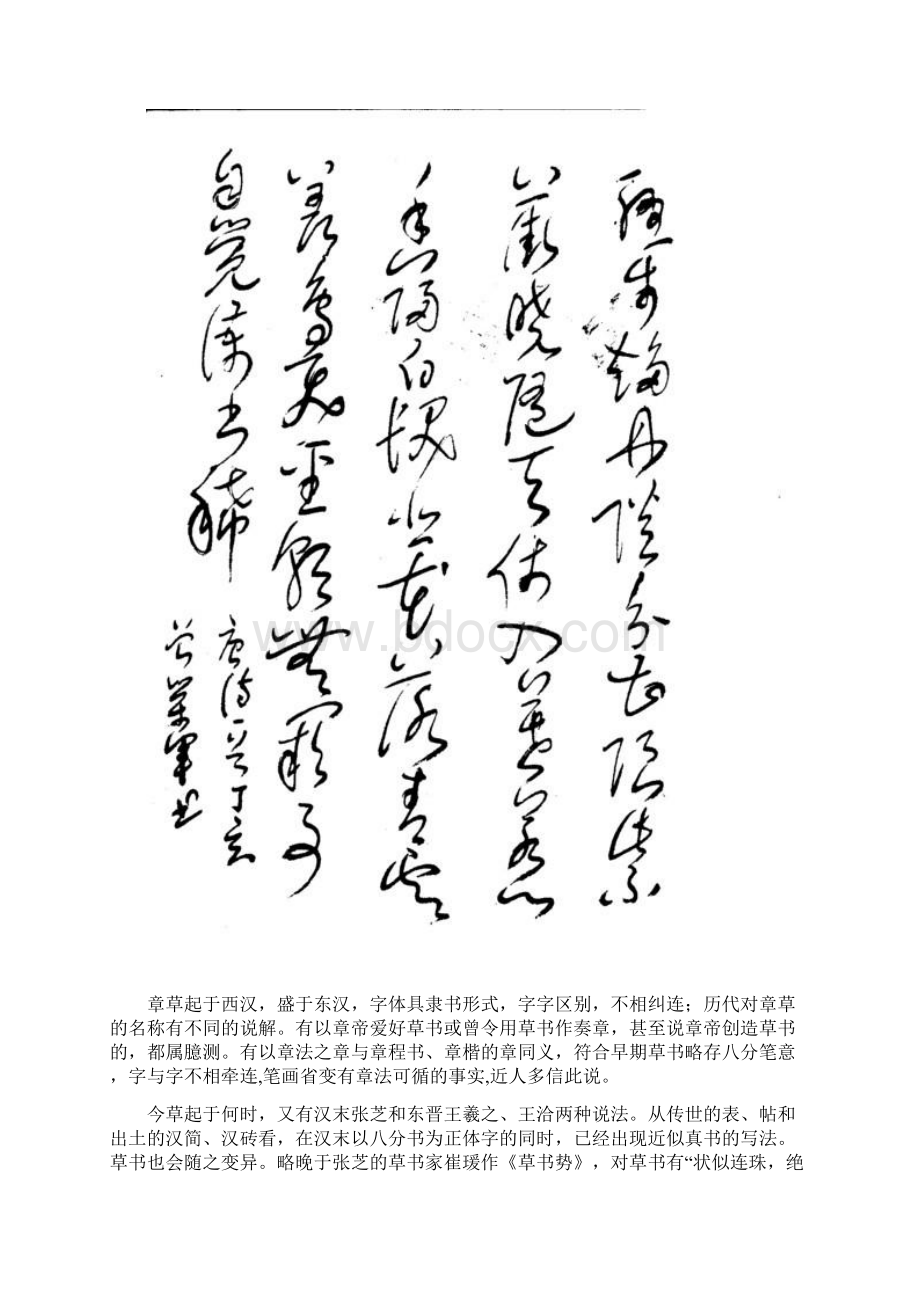 聯步趨丹陛分曹限紫
微曉隨天仗入暮惹御
香歸白髮悲花落青雲
羨鳥飛聖朝無闕事
自覺諫書稀
唐詩一首丁亥
书
www.bdocx.com
章草起于西汉，盛于东汉，字体具隶书形式，字字区别，不相纠连；历代对章草
的名称有不同的说解。有以章帝爱好草书或曾令用草书作奏章，甚至说章帝创造草书
的，都属臆测。有以章法之章与章程书、章楷的章同义，符合早期草书略存八分笔意
，字与字不相牵连,笔画省变有章法可循的事实,近人多信此说。
今草起于何时，又有汉末张芝和东晋王羲之、王洽两种说法。从传世的表、帖和
出土的汉简、汉砖看，在汉末以八分书为正体字的同时，已经出现近似真书的写法。
草书也会随之变异。略晚于张芝的草书家崔瑗作《草书势》，对草书有“状似连珠，绝